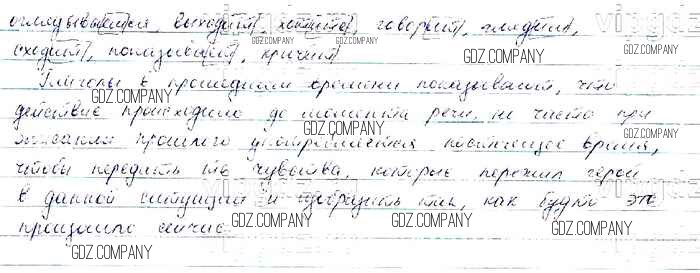 оглядывается, выходит, хватает, говорит, глядит,
сходит, показывает, кричит
Глаголы в прошедшем времени показывают, что
действие происходило до момента речи, но часто при
описании прошлого употребляется настоящее время,
чтобы передать те чувства, которые пережил герой
в данной ситуации и изобразить так, как будто это
произошло сейчас.
GDZ.COMPANY
GDZ.COMPANY
GDZ.COMPANY
GDZ.COMPANY
GDZ.COMPANY
GDZ.COMPANY
GDZ.COMPANY
GDZ.COMPANY
GDZ.COMPANY
GDZ.COMPANY